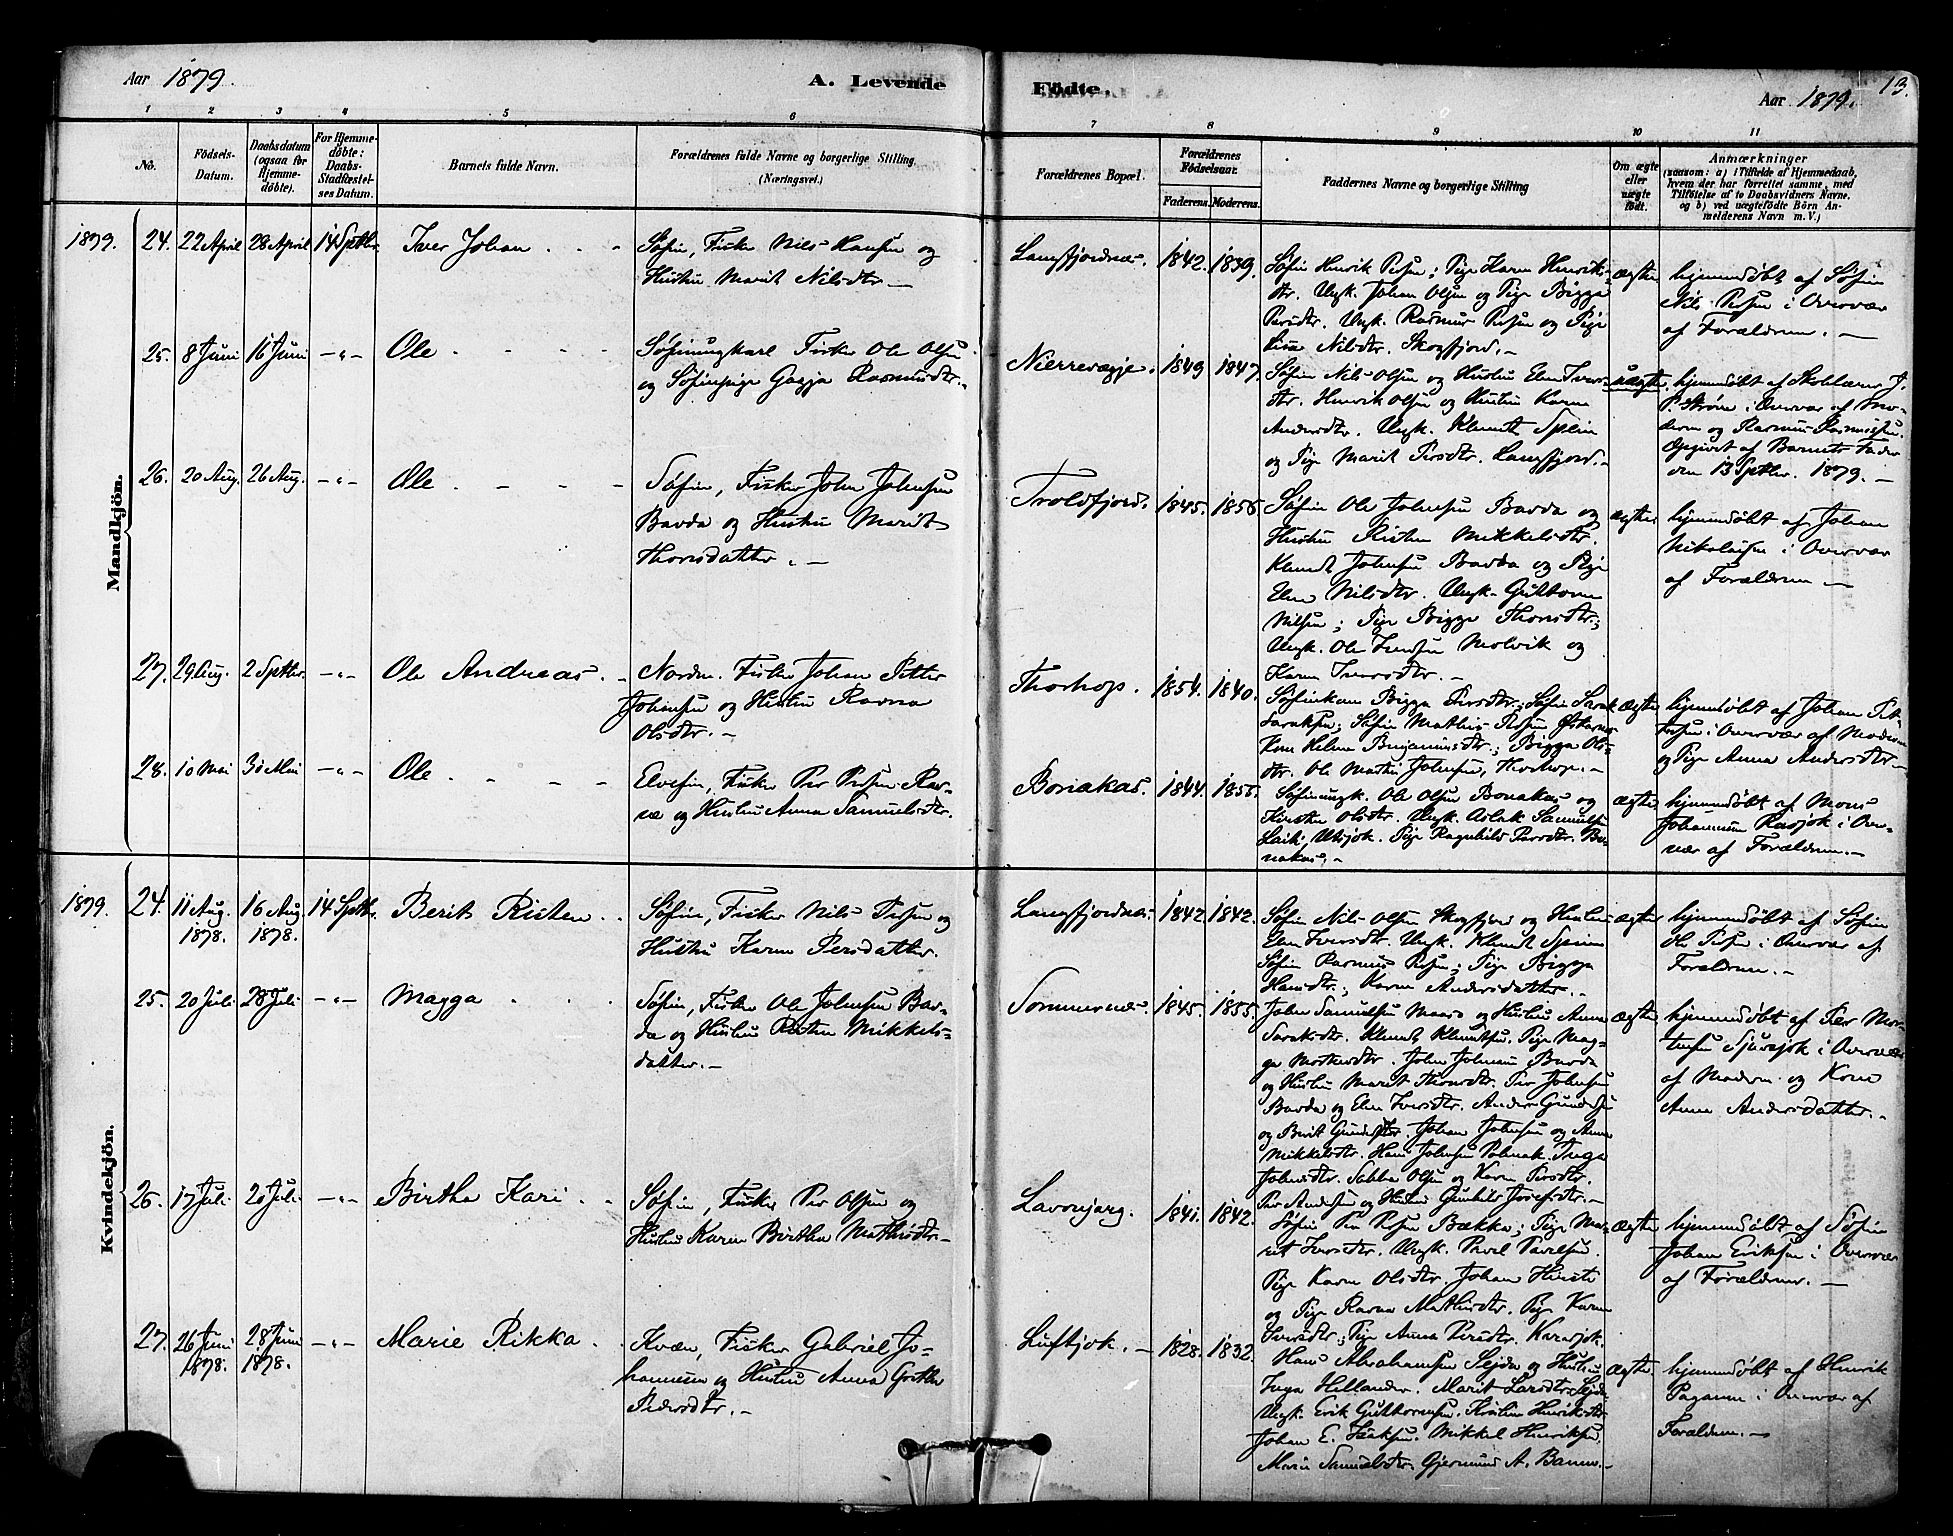 Aar 1879
A. Levende
Födte.
Aar 1879.
13.
1 2 3 4 5 6 7 8 9 10 11
No.
Födsels-
Datum.
Daabsdatum
(ogsaa for
Hjemme-
döbte).
For Hjemme-
döbte:
Daabs-
Stadfæstel-
ses Datum.
Barnets fulde Navn.
Forældrenes fulde Navne og borgerlige Stilling.
(Næringsvei.)
Forældrenes Bopæl.
Forældrenes
Födselsaar.
Faderens. Moderens.
Faddernes Navne og borgerlige Stilling
Om ægte
eller
uægte
födt.
Anmærkninger
(saasom: a) i Tilfælde af Hjemmedaab,
hvem der har forrettet samme, med
Tilföielse af to Daabsvidners Navne,
og b) ved uægtefödte Börn An-
melderens Navn m. V.)
Mandkjön.
1879. 24. 22 April 28 April 14 Septbr. Iver Johan
Søfin, Fisker Nils Hansen og
Hustru Marit Nilsdtr. —
Langfjordnæs. 1842. 1839.
Søfin Henrik Persen; Pige Karen Henriks-
dtr. Ungk. Johan Olsen og Pige Bigga
Persdtr. Ungk. Rasmus Persen og Pige
Nilsdtr. Skogfjord. —
ægte
hjemmedøbt af Søfin
Nils Persen i Overvær
af Forældrene. —
25. 8 Juni 16 Juni —"— Ole
Søfinungkarl Fisker Ole Olsen
og Søfinpige Gagja Rasmusdtr.
Nierrevagje. 1849 1847.
Søfin Nils Olsen og Hustru Elen Ivers-
dtr. Henrik Olsen og Hustru Karen
Andersdtr. Ungk. Klemet Spein
og Pige Marit Persdtr. Langfjord. —
uægte
hjemmedøbt af Skolelærer J.
P. Strøm i Overvær af Mo-
deren og Rasmus Rasmussen.
Opgivet af Barnets Fader
den 13 Septbr. 1879. —
26. 20 Aug. 26 Aug. —"— Ole
Søfin, Fisker John Johnsen
Bavda og Hustru Marit
Thorsdatter. —
Troldfjord. 1845. 1856
Søfin Ole Johnsen Bavda og
Hustru Risten Mikkelsdtr.
Klemet Johnsen Bavda og Pige
Elen Nilsdtr. Ungk. Guttorm
Nilsen; Pige Bigga Thorsdtr;
Ungk. Ole Iversen Molvik og
Karen Iversdtr. —
ægte
hjemmedøbt af Johan
Nikolaisen i Overvær
af Forældrene —
27. 29 Aug. 2 Septbr. —"— Ole Andreas.
Nordm. Fisker Johan Petter
Johnsen og Hustru Ravna
Olsdtr. —
Thorhop. 1854. 1840.
Søfinkone Bigga Persdtr; Søfin Sarak
Saraksen; Søfin Mathis Persen
Kone Helene Benjaminsdtr.; Bigga Ols-
dtr. Ole Mathis Johnsen, Thorhop. —
ægte
hjemmedøbt af Johan Pet-
tersen i Overvær af Moderen
og Pige Anna Andersdtr —
28. 10 Mai 30 Mai —"— Ole
Elvefin, Fisker Per Persen Rav-
na og Hustru Anna Samuelsdtr.
Bonakas. 1844. 1855.
Søfinungk. Ole Olsen Bonakas og
Kirsten Olsdtr. Ungk. Aslak Samuelsen
Laiti, Utsjok. Pige Ragnhild Persdtr. Bo-
nakas. —
ægte
hjemmedøbt af Mons
Johannesen Rasjok i Over-
vær af Forældrene. —
Kvindekjön.
1879. 24. 11 Aug. 1878. 16 Aug. 1878. 14 Septbr. Berit Risten
Søfin, Fisker Nils Persen og
Hustru Karen Persdatter.
Langfjordnæs. 1842. 1842.
Søfin Nils Olsen Skogfjord og Hustru
Elen Iversdtr. Ungk. Klemet Spein
Søfin Rasmus Persen; Pige Bigga
Hansdtr; Karen Andersdatter. —
ægte
hjemmedøbt af Søfin
Ole Persen i Overvær af
Forældrene. —
25. 20 Juli 28 Juli —"— Magga
Søfin, Fisker Ole Johnsen Bav-
da og Hustru Risten Mikkels-
datter. —
Sommernæs. 1845. 1855.
John Samuelsen og Hustru Anna
Saraksdtr. Klemet Klemetsen. Pige Mag-
ga Mortensdtr. John Johnsen Bavda
og Hustru Marit Thorsdtr. Per Johnsen
Bavda og Elen Iversdtr. Anders Gundersen
og Berit Gundersdtr. Johan Johnsen og Anna
Mikkelsdtr. Hans Johnsen Polmak. Inga
Johnsdtr. Sabba Olsen og Karen Persdtr.
Per Andersen og Hustru Gunhild Josefsdtr. —
ægte
hjemmedøbt af Per Mor-
tensen Sjursjok i Overvær
af Moderen og Kone
Anna Andersdatter. —
26. 17 Juli 20 Juli —"— Birtha Kari
Søfin, Fisker Per Olsen og
Hustru Karen Birtha Mathisdtr —
Lavonjarg. 1841. 1842.
Søfin Per Persen Bækka; Pige Ma-
rit Iversdtr. Ungk. Povel Povelsen.
Pige Karen Olsdtr. Johan
og Pige Ravna Mathisdtr. Pige Karen
Iversdtr; Pige Anna Persdtr.
ægte
hjemmedøbt af Søfin
Johan Eriksen i Overvær
af Forældrene. —
27. 26 Juni 1878. 28 Juni 1878. —"— Marie Rikka
Kvæn, Fisker Gabriel Jo-
hannesen og Hustru Anna Grethe
Pedersdtr. —
Luftjok. — 1828. 1832.
Hans Abrahamsen Sejda og Hustru
Inga Hellander. Marit Larsdtr. Sejda
Ungk. Erik Guttormsen. Kristine Henriksdtr
Johan E. Isaksen. Mikkel Henriksen.
Marie Samuelsdtr. Gjermund A. Banne. —
ægte
hjemmedøbt af Henrik
Paganen i Overvær af
Forældrene. —